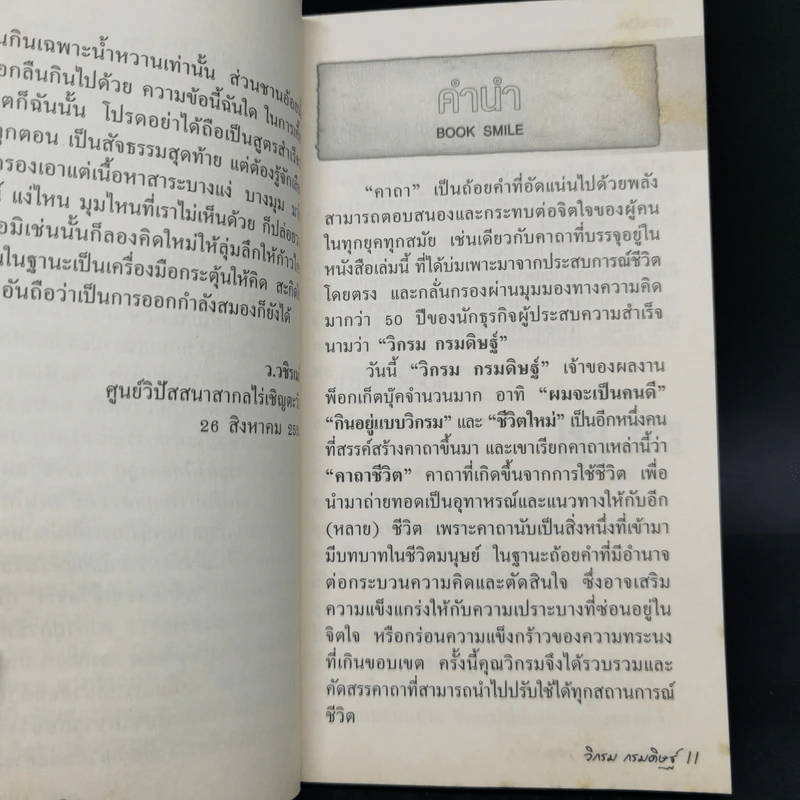 นกินเฉพาะน้ำหวานเท่านั้น ส่วนชานอ้อย
อกลืนกินไปด้วย ความข้อนี้ฉันใด ในการ
ตก็ฉันนั้น โปรดอย่าได้ถือเป็นสูตรสำเร็จ
ุกตอน เป็นสัจธรรมสุดท้าย แต่ต้องรู้จัก
รองเอาแต่เนื้อหาสาระบางแง่ บางมุม
์ แง่ไหน มุมไหนที่เราไม่เห็นด้วย ก็ปล่อย
อมิเช่นนั้นก็ลองคิดใหม่ให้ลุ่มลึกให้ก้าว
นในฐานะเป็นเครื่องมือกระตุ้นให้คิด สะกิด
อันถือว่าเป็นการออกกำลังสมองก็ยังได้
ว.วชิรเม
ศูนย์วิปัสสนาสากลไร่เชิญตะวั
26 สิงหาคม 25
คำนำ
BOOK SMILE
“คาถา” เป็นถ้อยคำที่อัดแน่นไปด้วยพลัง
สามารถตอบสนองและกระทบต่อจิตใจของผู้คน
ในทุกยุคทุกสมัย เช่นเดียวกับคาถาที่บรรจุอยู่ใน
หนังสือเล่มนี้ ที่ได้บ่มเพาะมาจากประสบการณ์ชีวิต
โดยตรง และกลั่นกรองผ่านมุมมองทางความคิด
มากว่า 50 ปีของนักธุรกิจผู้ประสบความสำเร็จ
นามว่า “วิกรม กรมดิษฐ์”
วันนี้ “วิกรม กรมดิษฐ์” เจ้าของผลงาน
พ็อกเก็ตบุ๊คจำนวนมาก อาทิ “ผมจะเป็นคนดี”
“กินอยู่แบบวิกรม” และ “ชีวิตใหม่” เป็นอีกหนึ่งคน
ที่สรรค์สร้างคาถาขึ้นมา และเขาเรียกคาถาเหล่านี้ว่า
“คาถาชีวิต” คาถาที่เกิดขึ้นจากการใช้ชีวิต เพื่อ
นำมาถ่ายทอดเป็นอุทาหรณ์และแนวทางให้กับอีก
(หลาย) ชีวิต เพราะคาถานับเป็นสิ่งหนึ่งที่เข้ามา
มีบทบาทในชีวิตมนุษย์ ในฐานะถ้อยคำที่มีอำนาจ
ต่อกระบวนความคิดและตัดสินใจ ซึ่งอาจเสริม
ความแข็งแกร่งให้กับความเปราะบางที่ซ่อนอยู่ใน
จิตใจ หรือกร่อนความแข็งกร้าวของความทระนง
ที่เกินขอบเขต ครั้งนี้คุณวิกรมจึงได้รวบรวมและ
คัดสรรคาถาที่สามารถนำไปปรับใช้ได้ทุกสถานการณ์
ชีวิต
วิกรม กรมดิษฐ์ 11